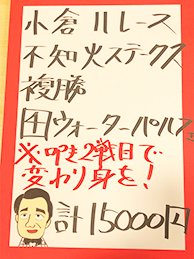 小倉11レース
不知火ステークス
複勝
田ウォーターパルフェ
※叩き2戦目で
変わり身を!
計15000円